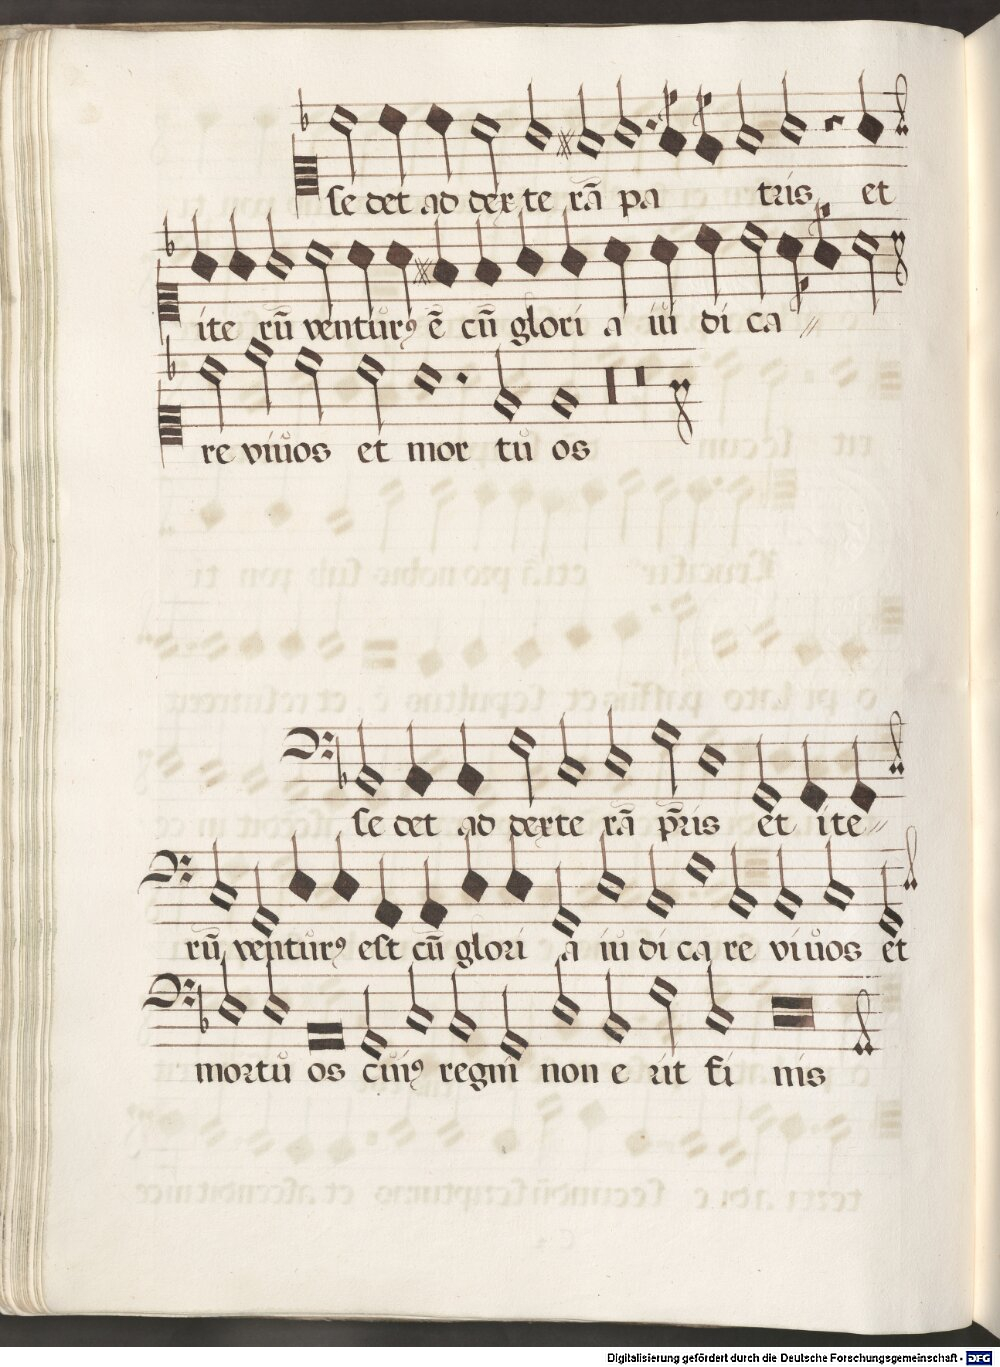 se det ad dex te rā pa tris et
ite rū ventur⁹ ē cū glori a iu di ca //
re viuos et mor tu os
se det ad dexte rā p̄ris et ite //
rū ventur⁹ est cū glori a iu di ca re vi uos et
mortu os cui⁹ regni non e rit fi nis
Digitalisierung gefördert durch die Deutsche Forschungsgemeinschaft - DFG